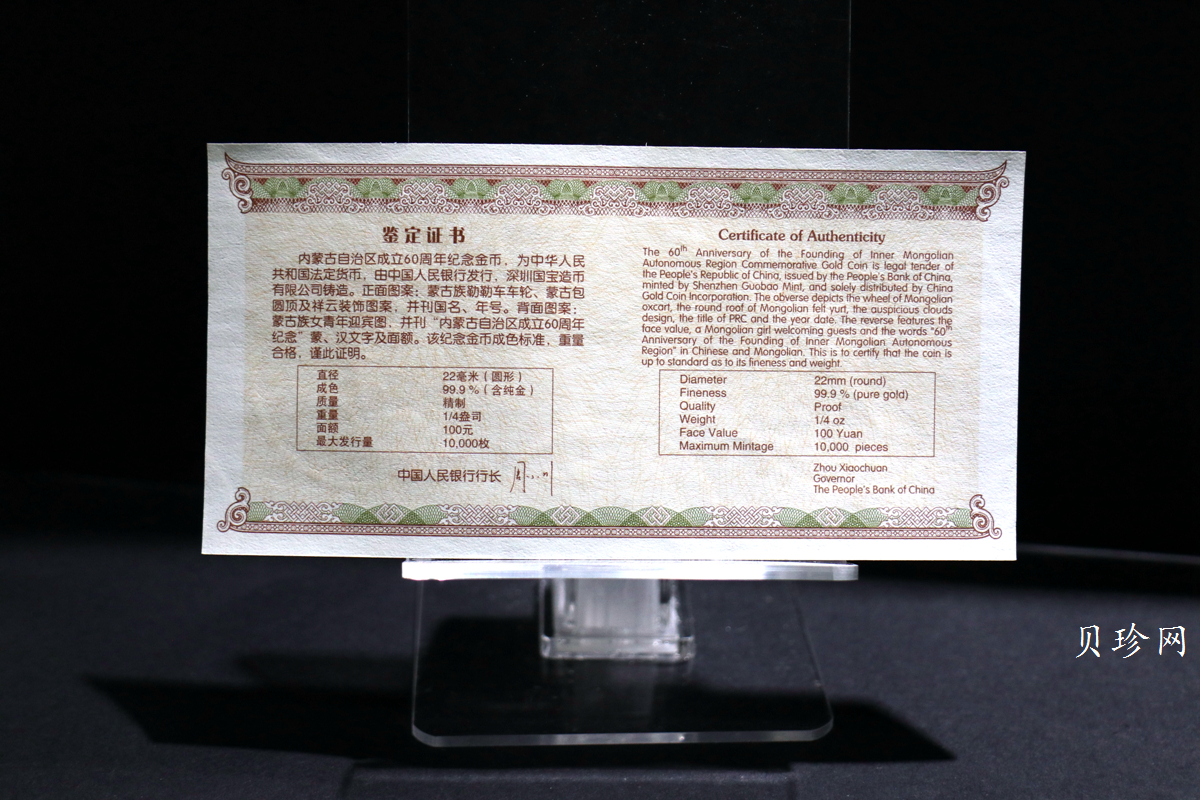 鉴定证书
内蒙古自治区成立60周年纪念金币，为中华人民
共和国法定货币，由中国人民银行发行，深圳国宝造币
有限公司铸造。正面图案：蒙古族勒勒车车轮、蒙古包
圆顶及祥云装饰图案，并刊国名、年号。背面图案：
蒙古族女青年迎宾图，并刊“内蒙古自治区成立60周年
纪念”蒙、汉文字及面额。该纪念金币成色标准，重量
合格，谨此证明。
直径 22毫米（圆形）
成色 99.9％（含纯金）
质量 精制
重量 1/4盎司
面额 100元
最大发行量 10,000枚
中国人民银行行长
Certificate of Authenticity
The 60th Anniversary of the Founding of Inner Mongolian
Autonomous Region Commemorative Gold Coin is legal tender of
the People's Republic of China, issued by the People's Bank of China,
minted by Shenzhen Guobao Mint, and solely distributed by China
Gold Coin Incorporation. The obverse depicts the wheel of Mongolian
oxcart, the round roof of Mongolian felt yurt, the auspicious clouds
design, the title of PRC and the year date. The reverse features the
face value, a Mongolian girl welcoming guests and the words "60th
Anniversary of the Founding of Inner Mongolian Autonomous
Region" in Chinese and Mongolian. This is to certify that the coin is
up to standard as to its fineness and weight.
Diameter 22mm (round)
Fineness 99.9 % (pure gold)
Quality Proof
Weight 1/4 oz
Face Value 100 Yuan
Maximum Mintage 10,000 pieces
Zhou Xiaochuan
Governor
The People's Bank of China
贝珍网